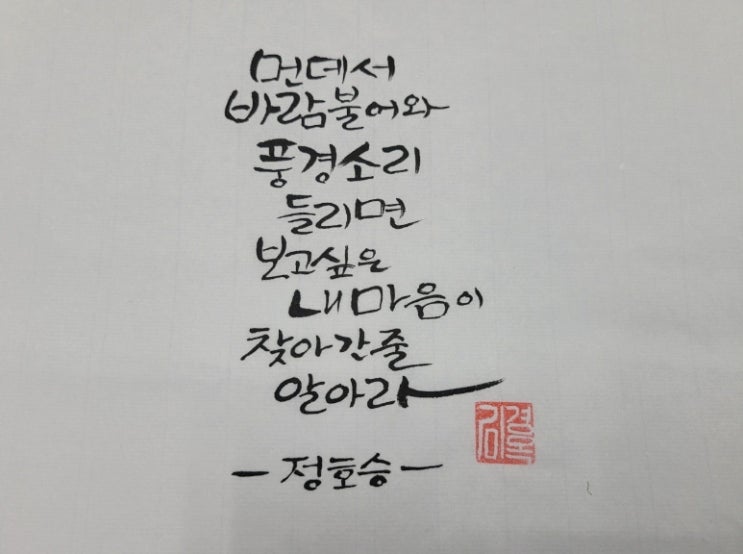 먼데서
바람불어와
풍경소리
들리면
보고싶은
내마음이
찾아간줄
알아라
- 정호승 -